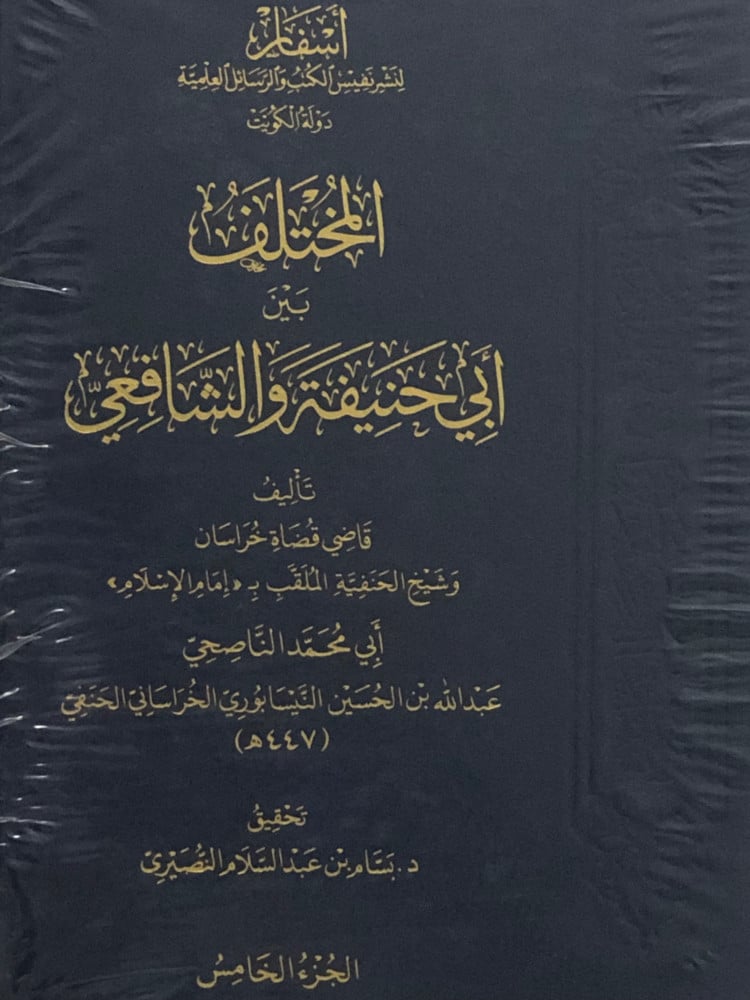 أسفار
لِنَشْرِ نَفِيسِ الكُتُبِ وَالرَّسَائِلِ العِلْمِيَّةِ
دَوْلَةُ الْكُوَيْتِ
المُخْتَلَفُ
بَيْنَ
أَبِي حَنِيفَةَ وَالشَّافِعِيِّ
تَأْلِيفُ
قَاضِي قُضَاةِ خُرَاسَان
وَشَيْخِ الحَنَفِيَّةِ المُلَقَّبِ بِـ «إِمَامِ الإِسْلَامِ»
أَبِي مُحَمَّد النَّاصِحِيِّ
عَبْدِ اللهِ بْنِ الحُسَيْنِ النَّيْسَابُورِي الخُرَاسَانِيِّ الحَنَفِيِّ
(٤٤٧هـ)
تَحْقِيقُ
د. بَسَّام بْن عَبْدِ السَّلَامِ النُّصَيْرِيّ
الجُزْءُ الخَامِسُ